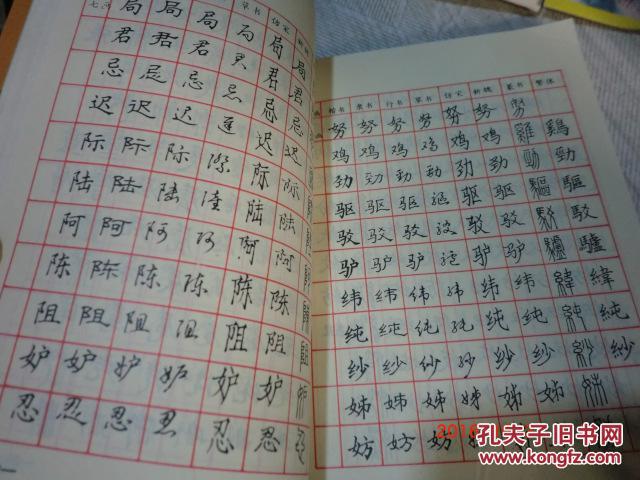 七画 草书 仿宋
局 局 局 局 局 局
君 君 君 君 君 君
忌 忌 忌 忌 忌 忌
迟 迟 迟 迟 迟 迟
际 际 际 際 际 际
陆 陆 陆 陆 陆 陆
阿 阿 阿 阿 阿 阿
陈 陈 陈 陈 陈 陈
阻 阻 阻 阻 阻 阻
妒 妒 妒 妒 妒 妒
忍 忍 忍 忍 忍 忍
楷书 隶书 行书 草书 仿宋 新魏 篆书 繁体
努 努 努 努 努 努 努
鸡 鸡 鸡 鸡 鸡 鸡 雞 鷄
劲 劲 劲 劲 劲 劲 勁 勁
驱 驱 驱 驱 驱 驱 驅 驅
驳 驳 驳 驳 驳 驳 駁 駁
驴 驴 驴 驴 驴 驴 驢 驢
纬 纬 纬 纬 纬 纬 緯 緯
纯 纯 纯 纯 纯 纯 純 純
纱 纱 纱 纱 纱 纱 紗 紗
姊 姊 姊 姊 姊 姊 姊
妨 妨 妨
孔夫子旧书网
www.kongfz.com